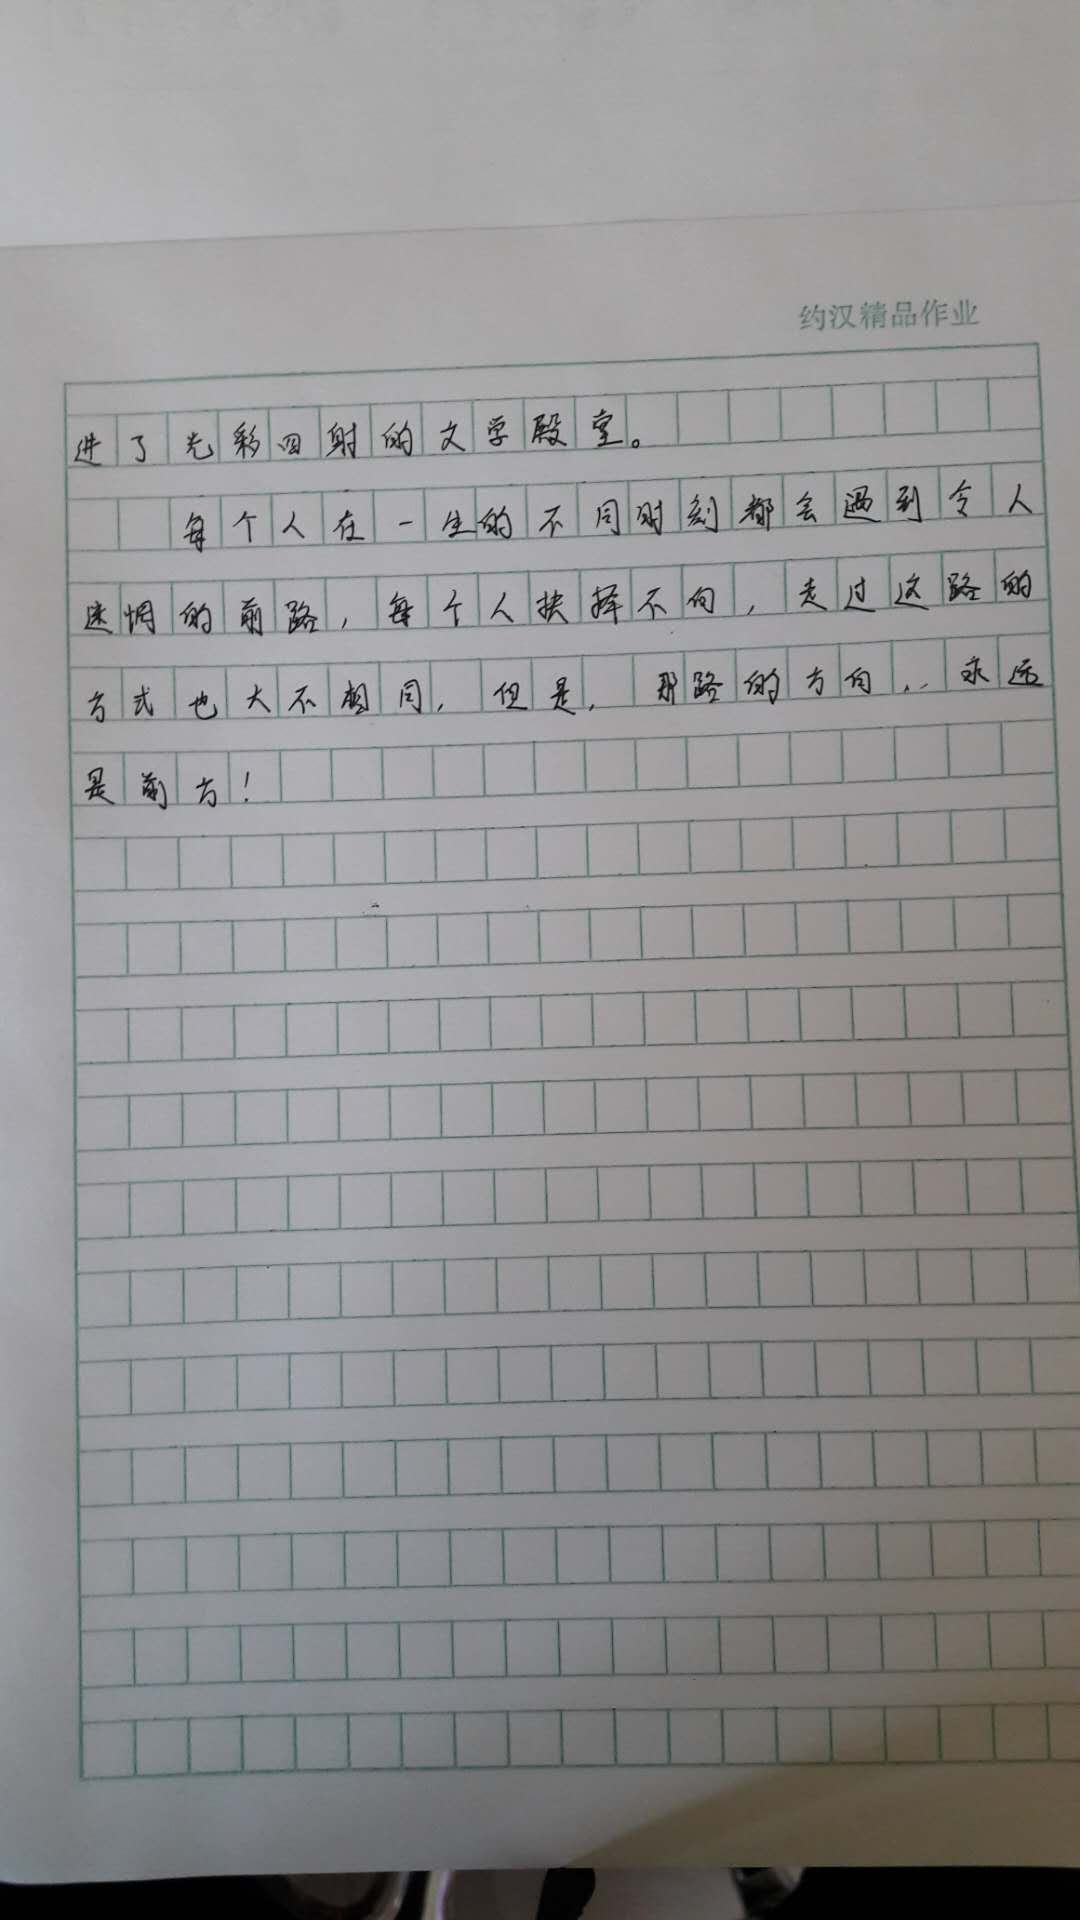 约汉精品作业
进了光彩四射的文学殿堂。
每个人在一生的不同时刻都会遇到令人
迷惘的前路，每个人抉择不同，走过这路的
方式也大不相同，但是，那路的方向，永远
是前方！